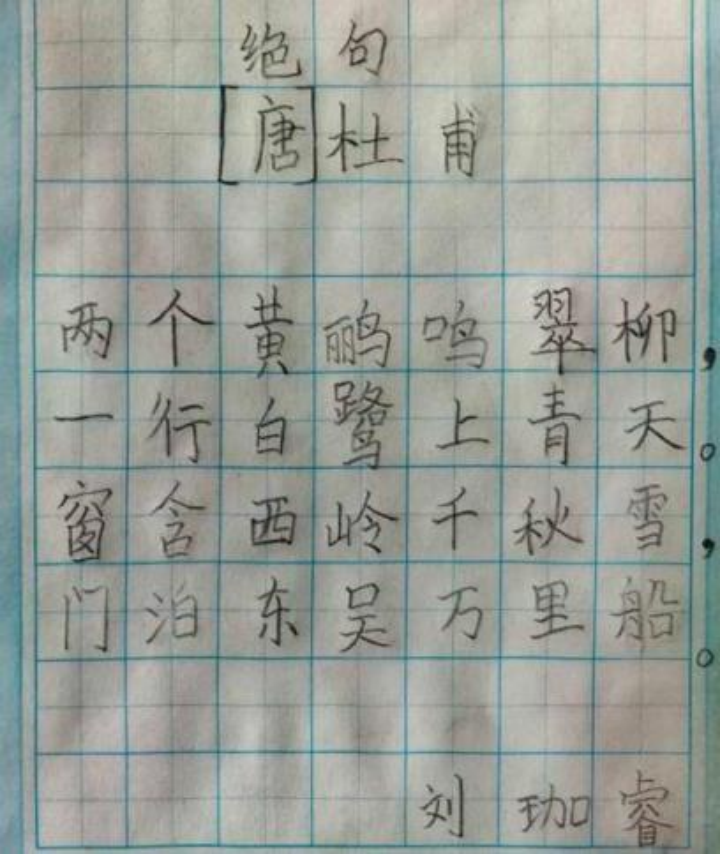 绝句
[唐]杜甫
两个黄鹂鸣翠柳，
一行白鹭上青天。
窗含西岭千秋雪，
门泊东吴万里船。
刘珈睿